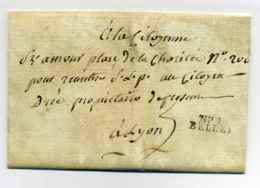 A la Citoyenne
St amour place de la Charité No 202
pour remettre s.l.p. au Citoyen
propriétaire
à Lyon
BELLEY